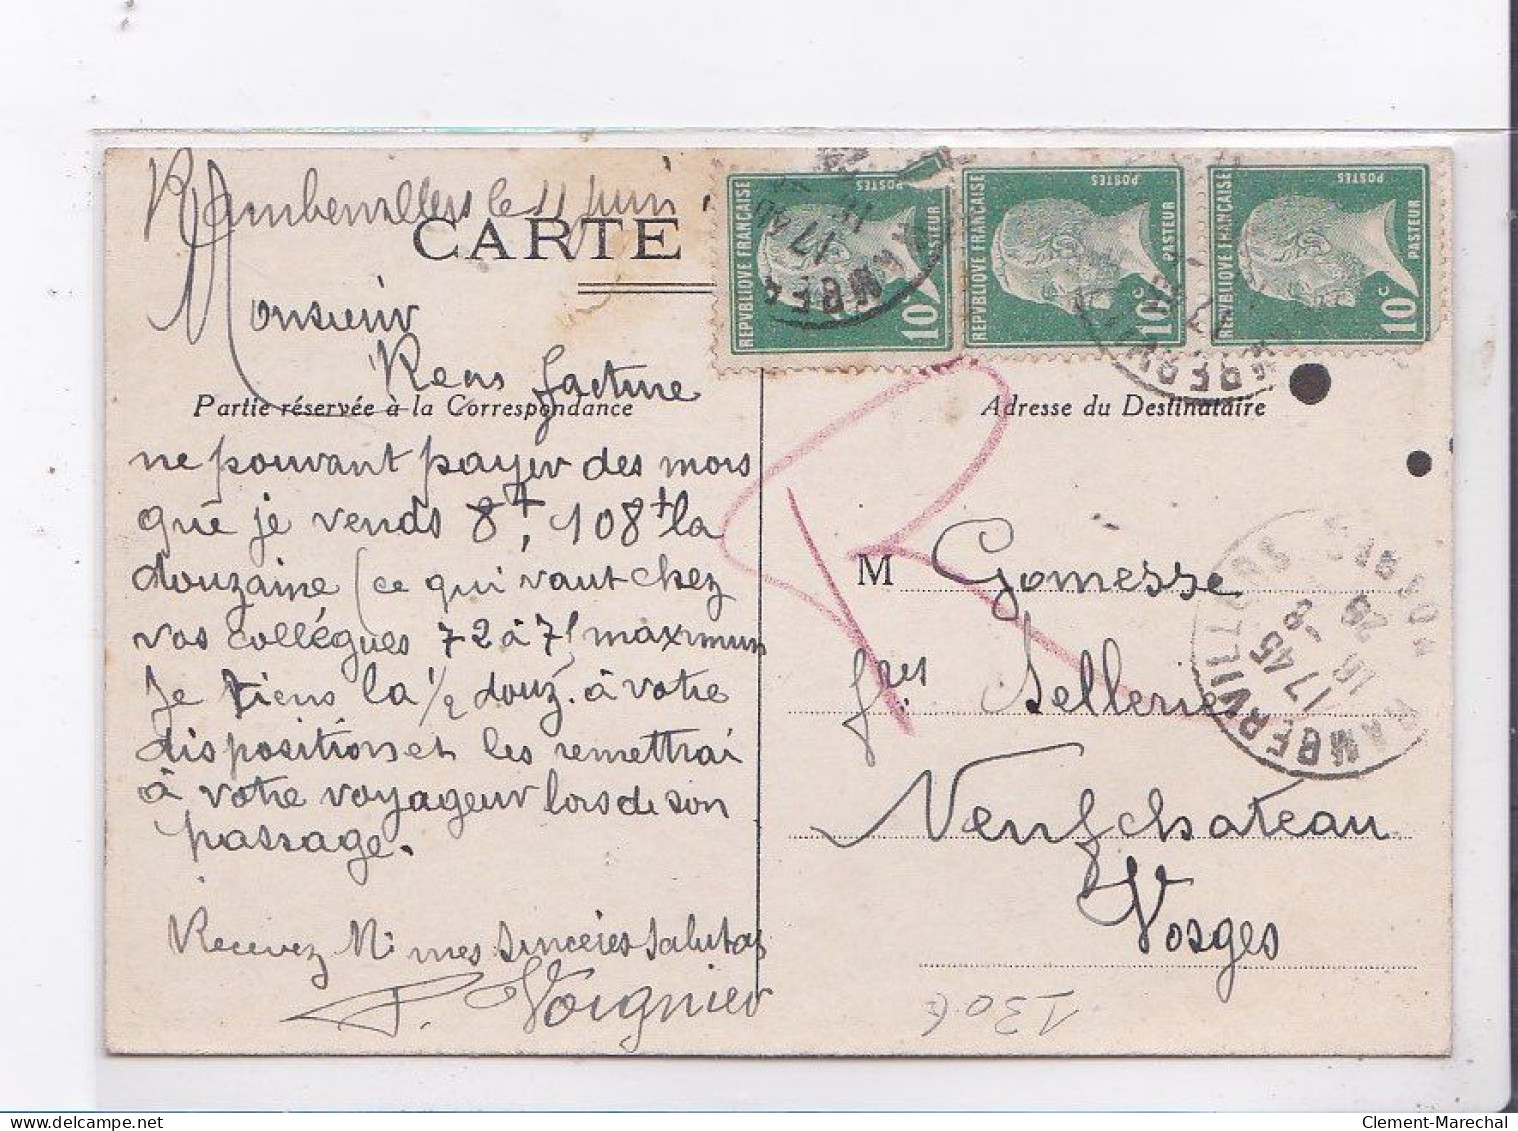 Rambervillers le 11 juin
CARTE
Monsieur
Reçu facture
Partie réservée à la Correspondance
ne pouvant payer des mors
que je vends 8f, 108f la
douzaine (ce qui vaut chez
vos collégues 72 à 75 maximum
Je tiens la 1/2 douz. à votre
disposition et les remettrai
à votre voyageur lors de son
passage.
Recevez Mr mes sincères salutat
P. Voignier
REPVBLIQVE FRANÇAISE
POSTES
PASTEUR
10c
REPVBLIQVE FRANÇAISE
POSTES
PASTEUR
10c
REPVBLIQVE FRANÇAISE
POSTES
PASTEUR
10c
Adresse du Destinataire
R
M Gomesse
fres Sellerie
Neufchateau
Vosges
RAMBERVILLERS
VOSGES
17 45
130 €
Clement-Marechal